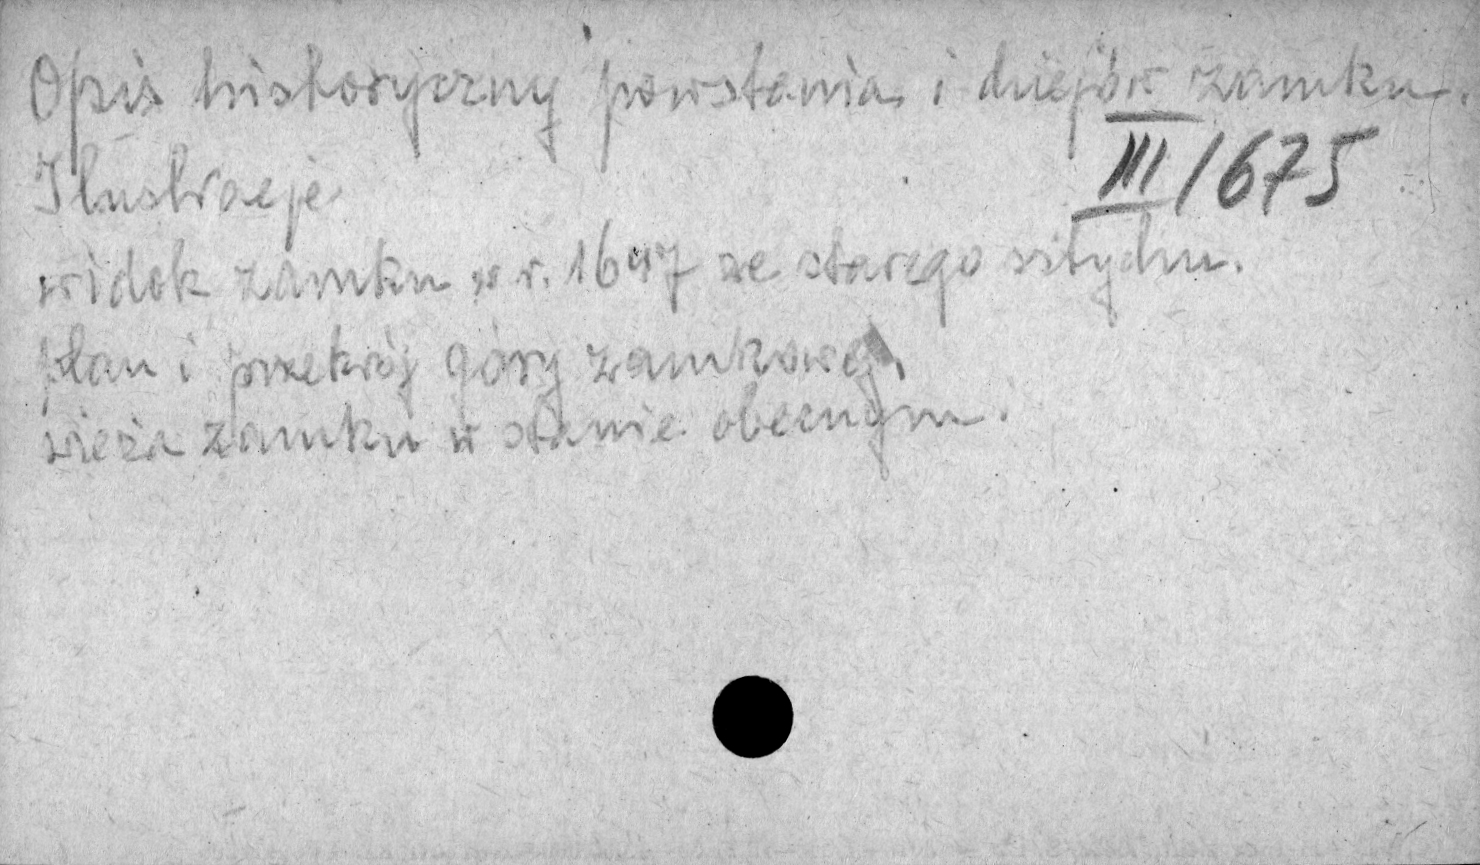 Opis historyczny powstania i dziejów zamku.
III/675
Ilustracje
widok zamku w r. 1647 ze starego sztychu.
plan i przekrój góry zamkowej.
wieża zamku w stanie obecnym.